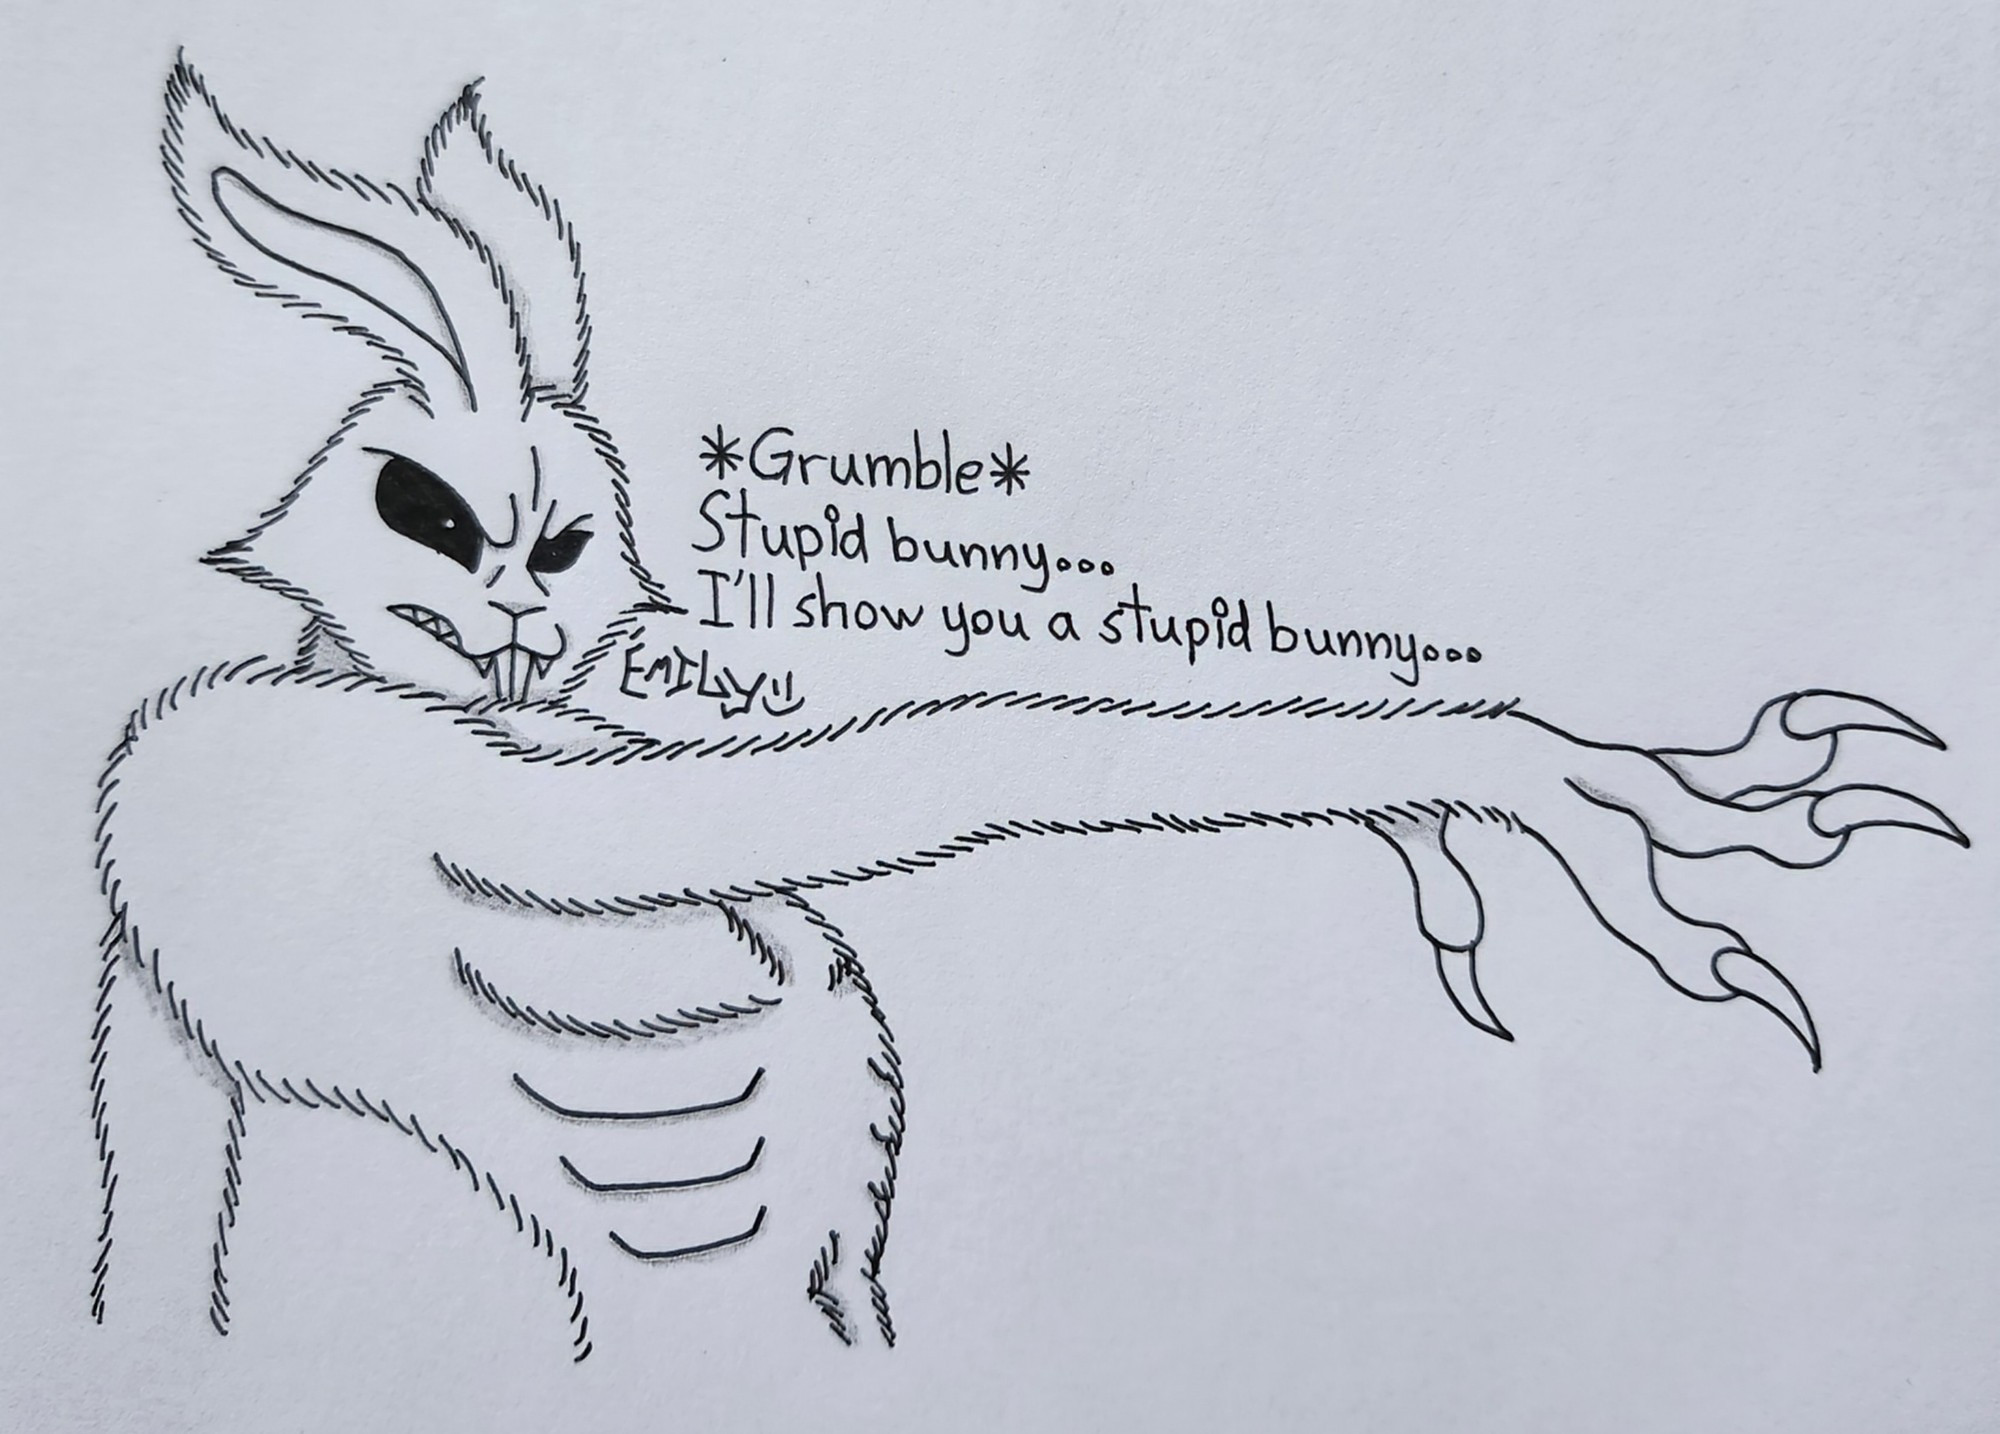 *Grumble*
Stupid bunny...
I'll show you a stupid bunny...
EMILY